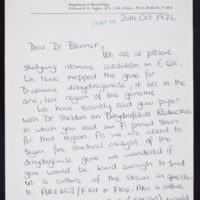 Department of Microbiology
26th Oct 1976
Dear Dr Brenner,
We are at present
studying alanine catabolism in E. coli.
We have mapped the gene for
D-alanine dehydrogenase, it lies in the
ara, leu region of the genome.
We have recently read your paper
with Dr Sheldon on Dihydrofolate Reductase
in which you used an F primed strain
for that region. As we are about to
begin fine structure analysis of the
dehydrogenase gene we wondered if
you would be kind enough to send
us a culture of the strain in question
Also a culture
would